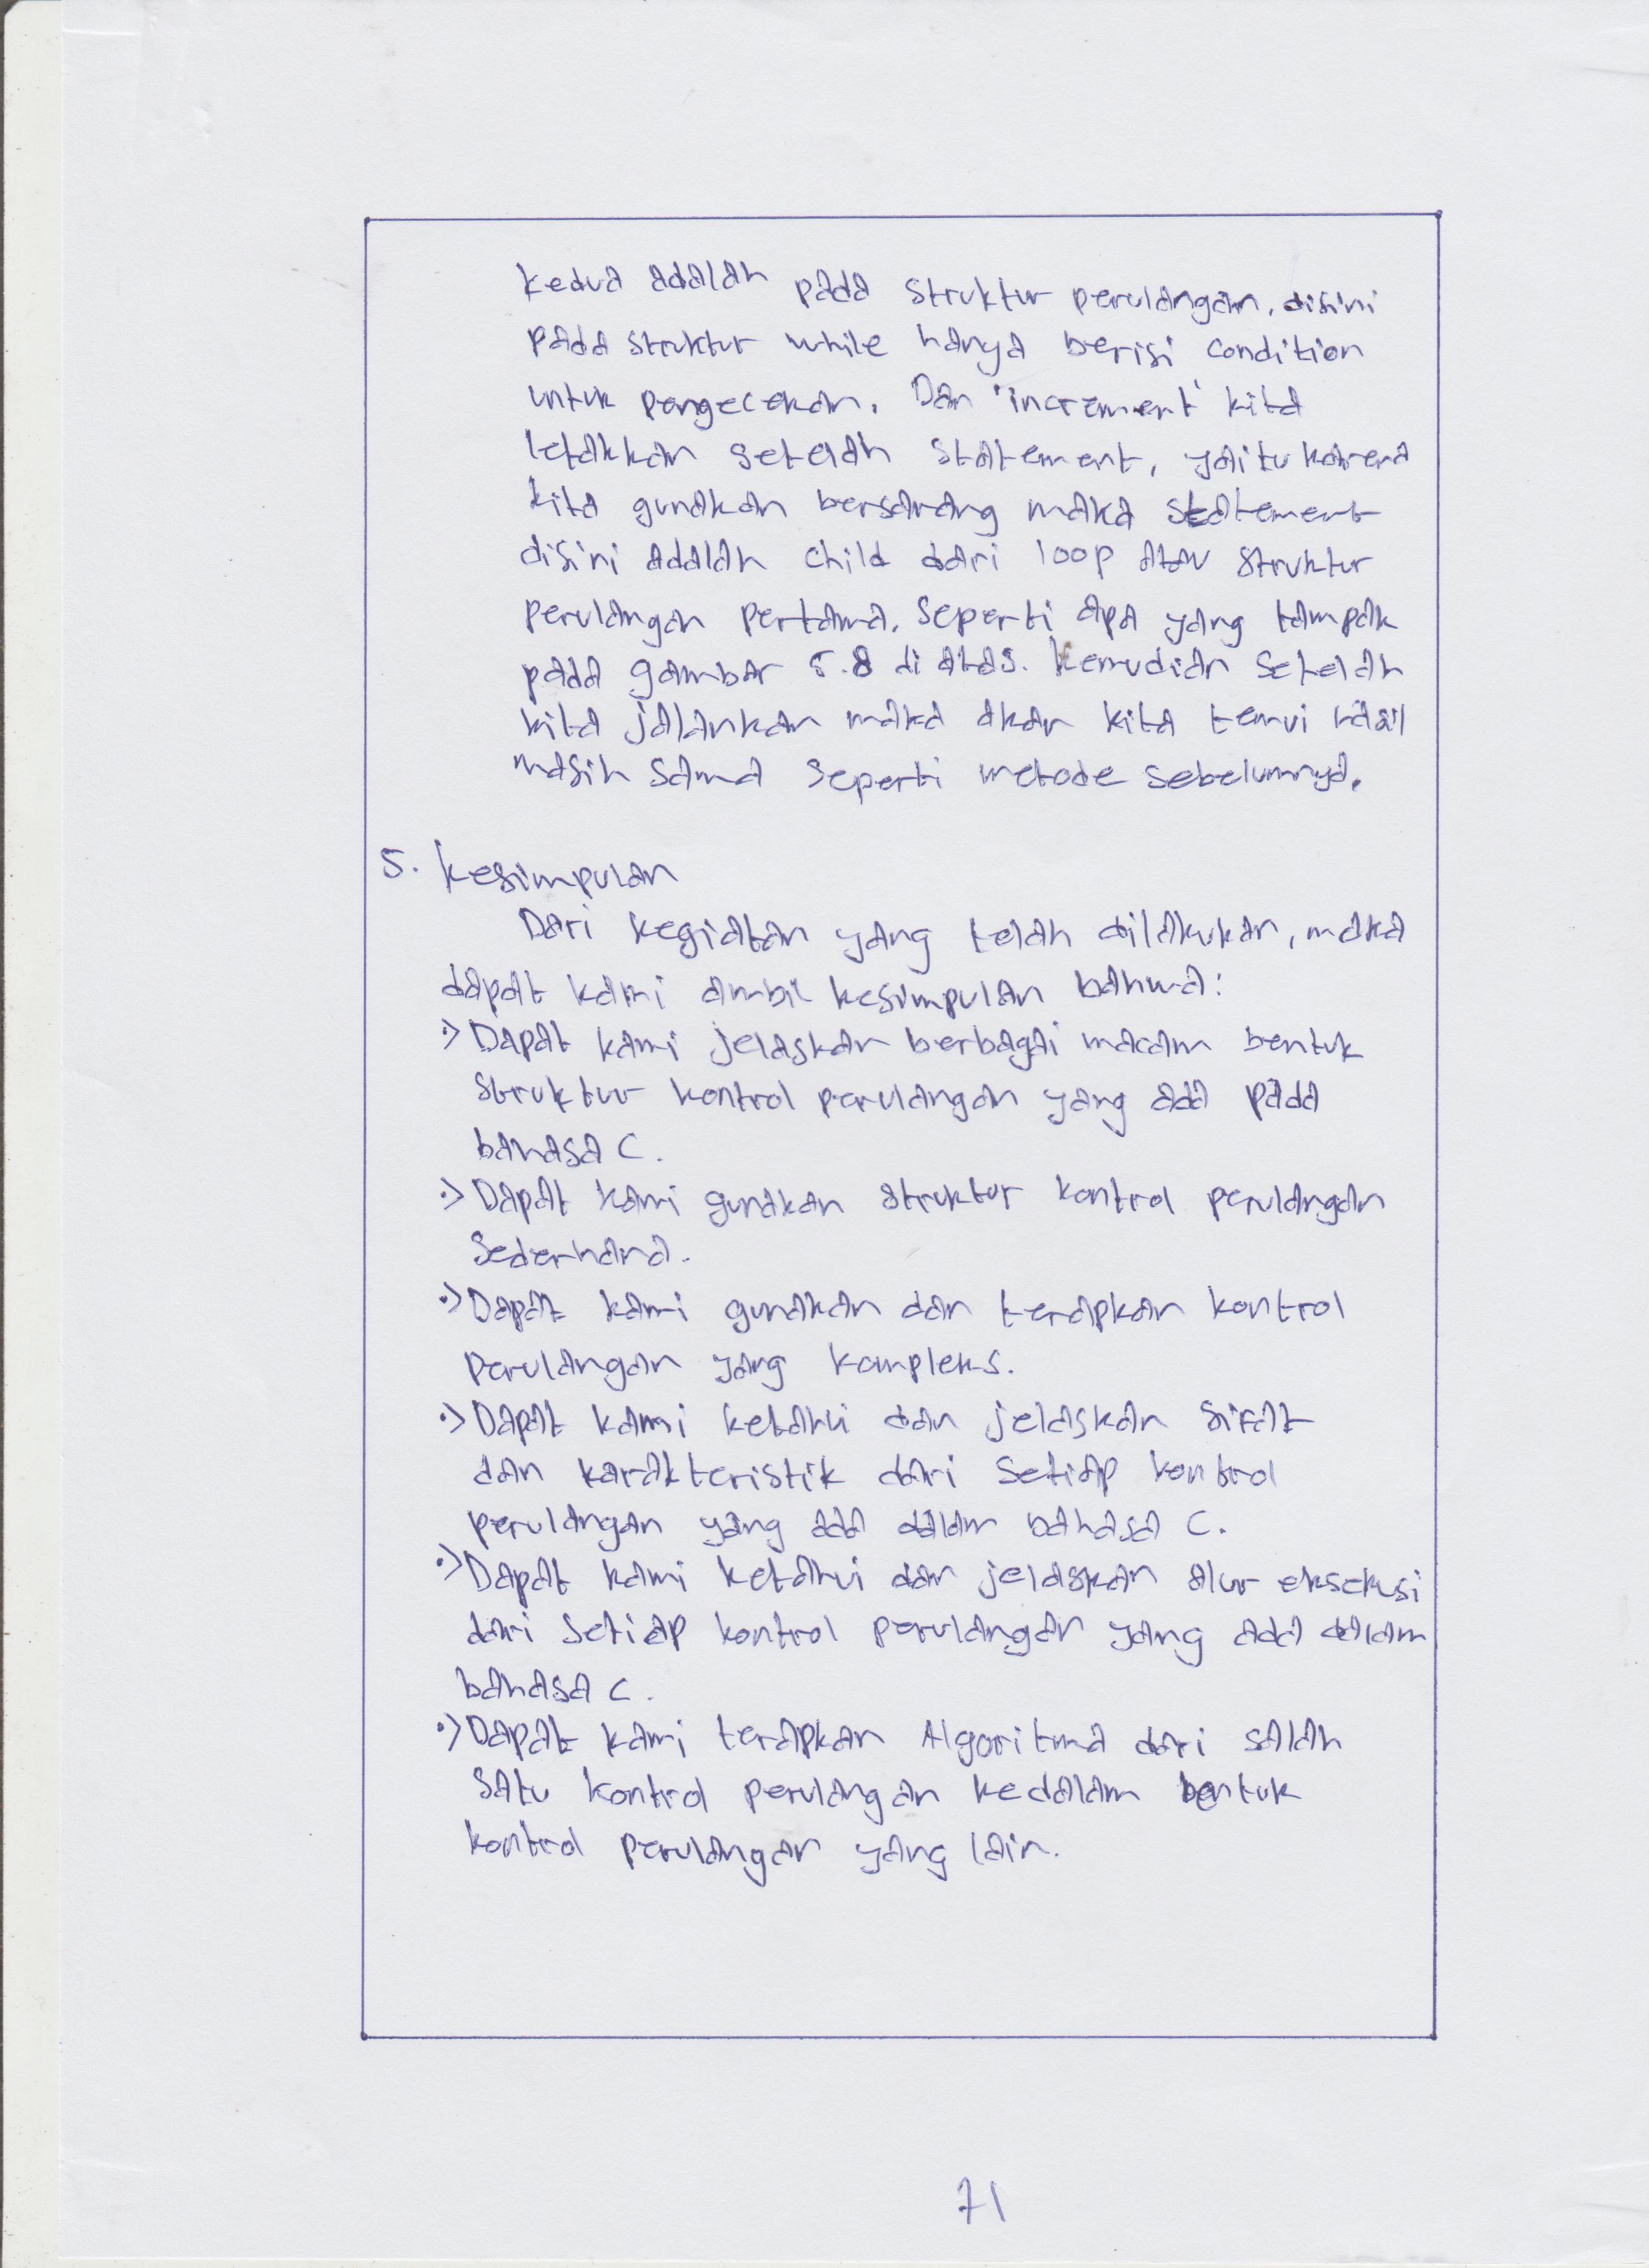 kedua adalah pada struktur perulangan, disini
pada struktur while hanya berisi condition
untuk pengecekan. Dan 'increment' kita
letakkan setelah statement, yaitu karena
kita gunakan bersarang maka statement
disini adalah child dari loop atau struktur
perulangan pertama. seperti apa yang tampak
pada gambar 5.8 di atas. kemudian setelah
kita jalankan maka akan kita temui hasil
masih sama seperti metode sebelumnya.
5. kesimpulan
Dari kegiatan yang telah dilakukan, maka
dapat kami ambil kesimpulan bahwa:
·> Dapat kami jelaskan berbagai macam bentuk
struktur kontrol perulangan yang ada pada
bahasa C.
·> Dapat kami gunakan struktur kontrol perulangan
sederhana.
·> Dapat kami gunakan dan terapkan kontrol
perulangan yang kompleks.
·> Dapat kami ketahui dan jelaskan sifat
dan karakteristik dari setiap kontrol
perulangan yang ada dalam bahasa C.
·> Dapat kami ketahui dan jelaskan alur eksekusi
dari setiap kontrol perulangan yang ada dalam
bahasa C.
·> Dapat kami terapkan Algoritma dari salah
satu kontrol perulangan kedalam bentuk
kontrol perulangan yang lain.
71